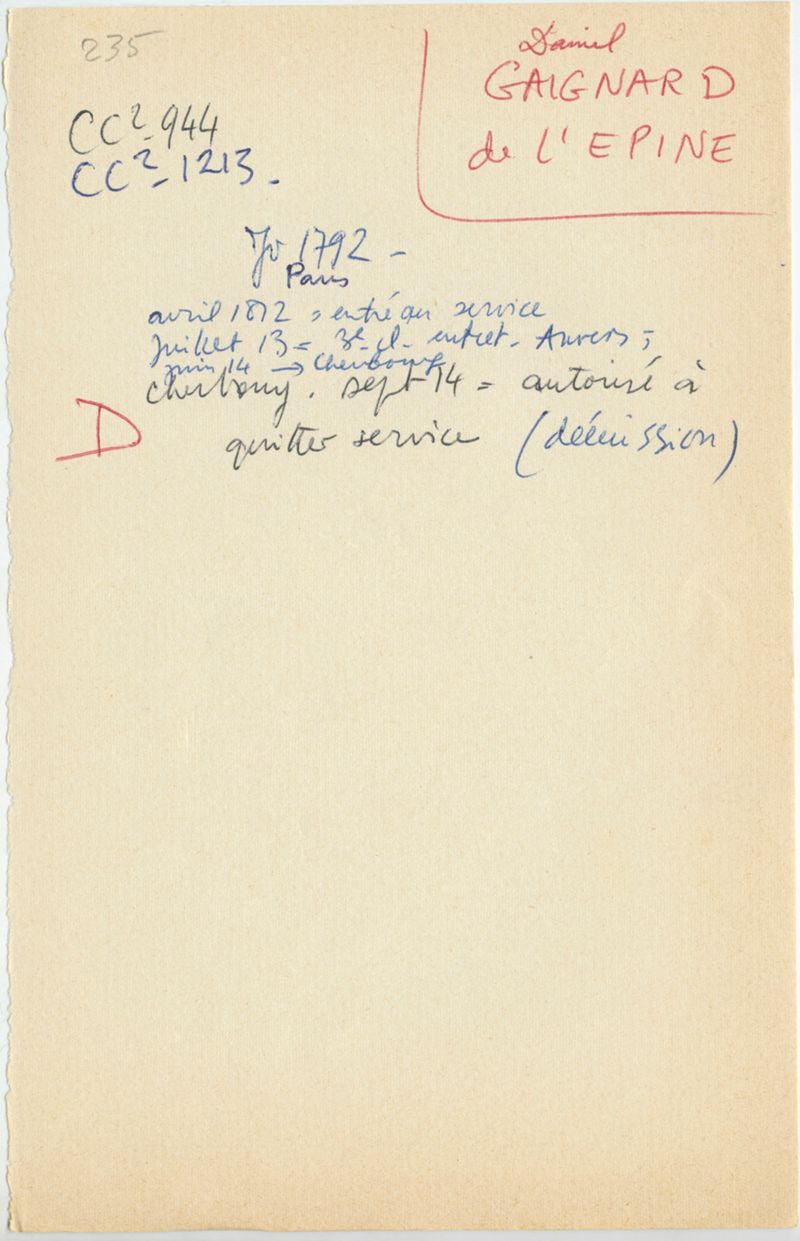 235
Daniel
GAIGNARD
de L'EPINE
CC2-944
CC2-1213-
1792 -
Paris
avril 1812 = entré au service
juillet 13 = 3e cl. entret. Anvers ;
juin 14 → Cherbourg
Cherbourg. sept 14 = autorisé à
D
quitter service (démission)